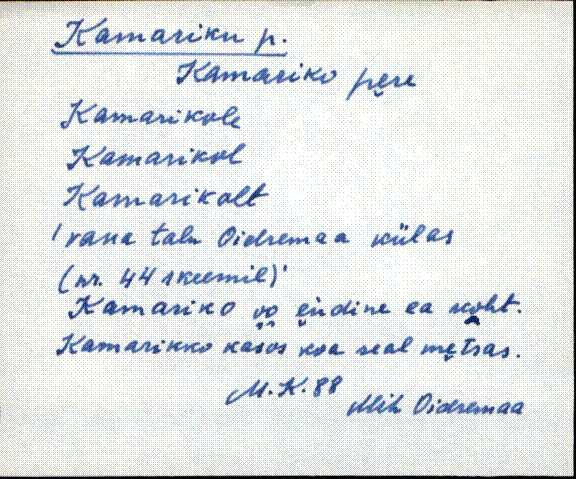 Kamariku p.
Kamariko pẹre
Kamarikole
Kamarikol
Kamarikolt
'vana talu Oidremaa külas
(nr. 44 skeemil)'
Kamariko oo ẹńdine ea koht.
Kamarikko kasos koa seal mẹtsas.
M.K. 88
Mih Oidremaa